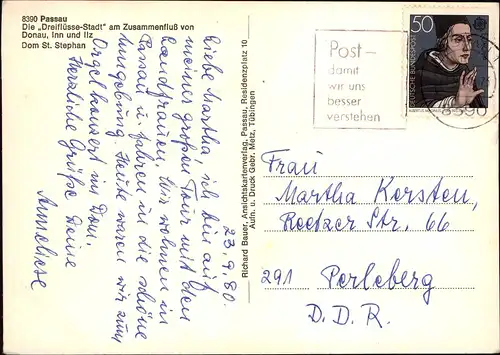 8390 Passau
Die „Dreiflüsse-Stadt" am Zusammenfluß von
Donau, Inn und Ilz
Dom St. Stephan
23.9.80.
Liebe Martha, ich bin auf
meiner großen Tour mit den
Landfrauen. Wir wohnen in
Passau u. fahren in die schöne
Umgebung. Heute waren wir zum
Orgelkonzert im Dom.
Herzliche Grüße Deine
Anneliese
Richard Bauer, Ansichtskartenverlag, Passau, Residenzplatz 10
Aufn. u. Druck Gebr. Metz, Tübingen
Post –
damit
wir uns
besser
verstehen
50
DEUTSCHE BUNDESPOST
8390
Frau
Martha Kersten,
Reetzer Str. 66
291 Perleberg
D.D.R.